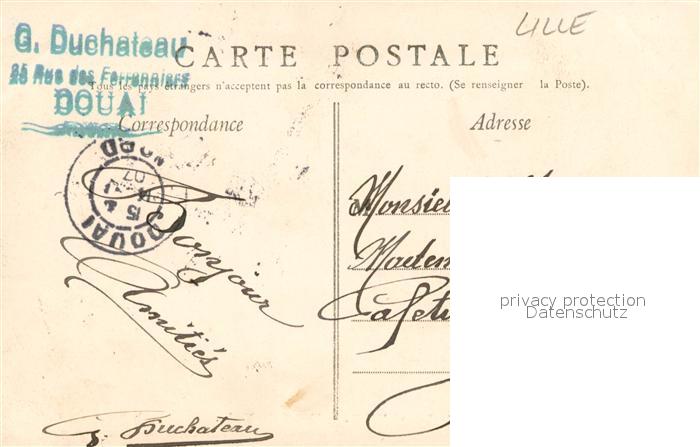 LILLE
G. Duchateau
25 Rue des Ferronniers
DOUAI
CARTE POSTALE
Tous les pays étrangers n'acceptent pas la correspondance au recto. (Se renseigner la Poste).
Correspondance
Adresse
DOUAI
NORD
15
07
Bonjour
Amitiés
G. Duchateau
Monsieu
Madem
privacy protection
Datenschutz